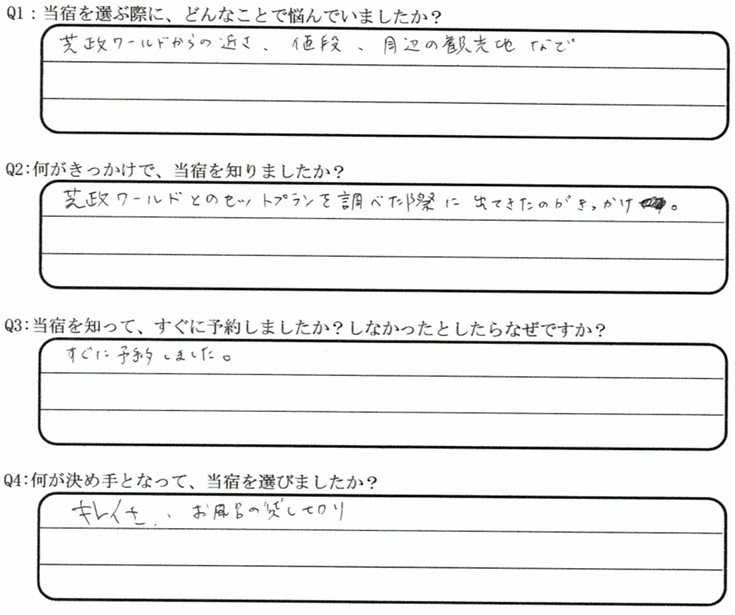 Q1：当宿を選ぶ際に、どんなことで悩んでいましたか？
芝政ワールドからの近さ、値段、周辺の観光地など
Q2:何がきっかけで、当宿を知りましたか？
芝政ワールドとのセットプランを調べた際に出てきたのがきっかけ。
Q3:当宿を知って、すぐに予約しましたか？しなかったとしたらなぜですか？
すぐに予約しました。
Q4:何が決め手となって、当宿を選びましたか？
キレイさ、お風呂の貸し切り